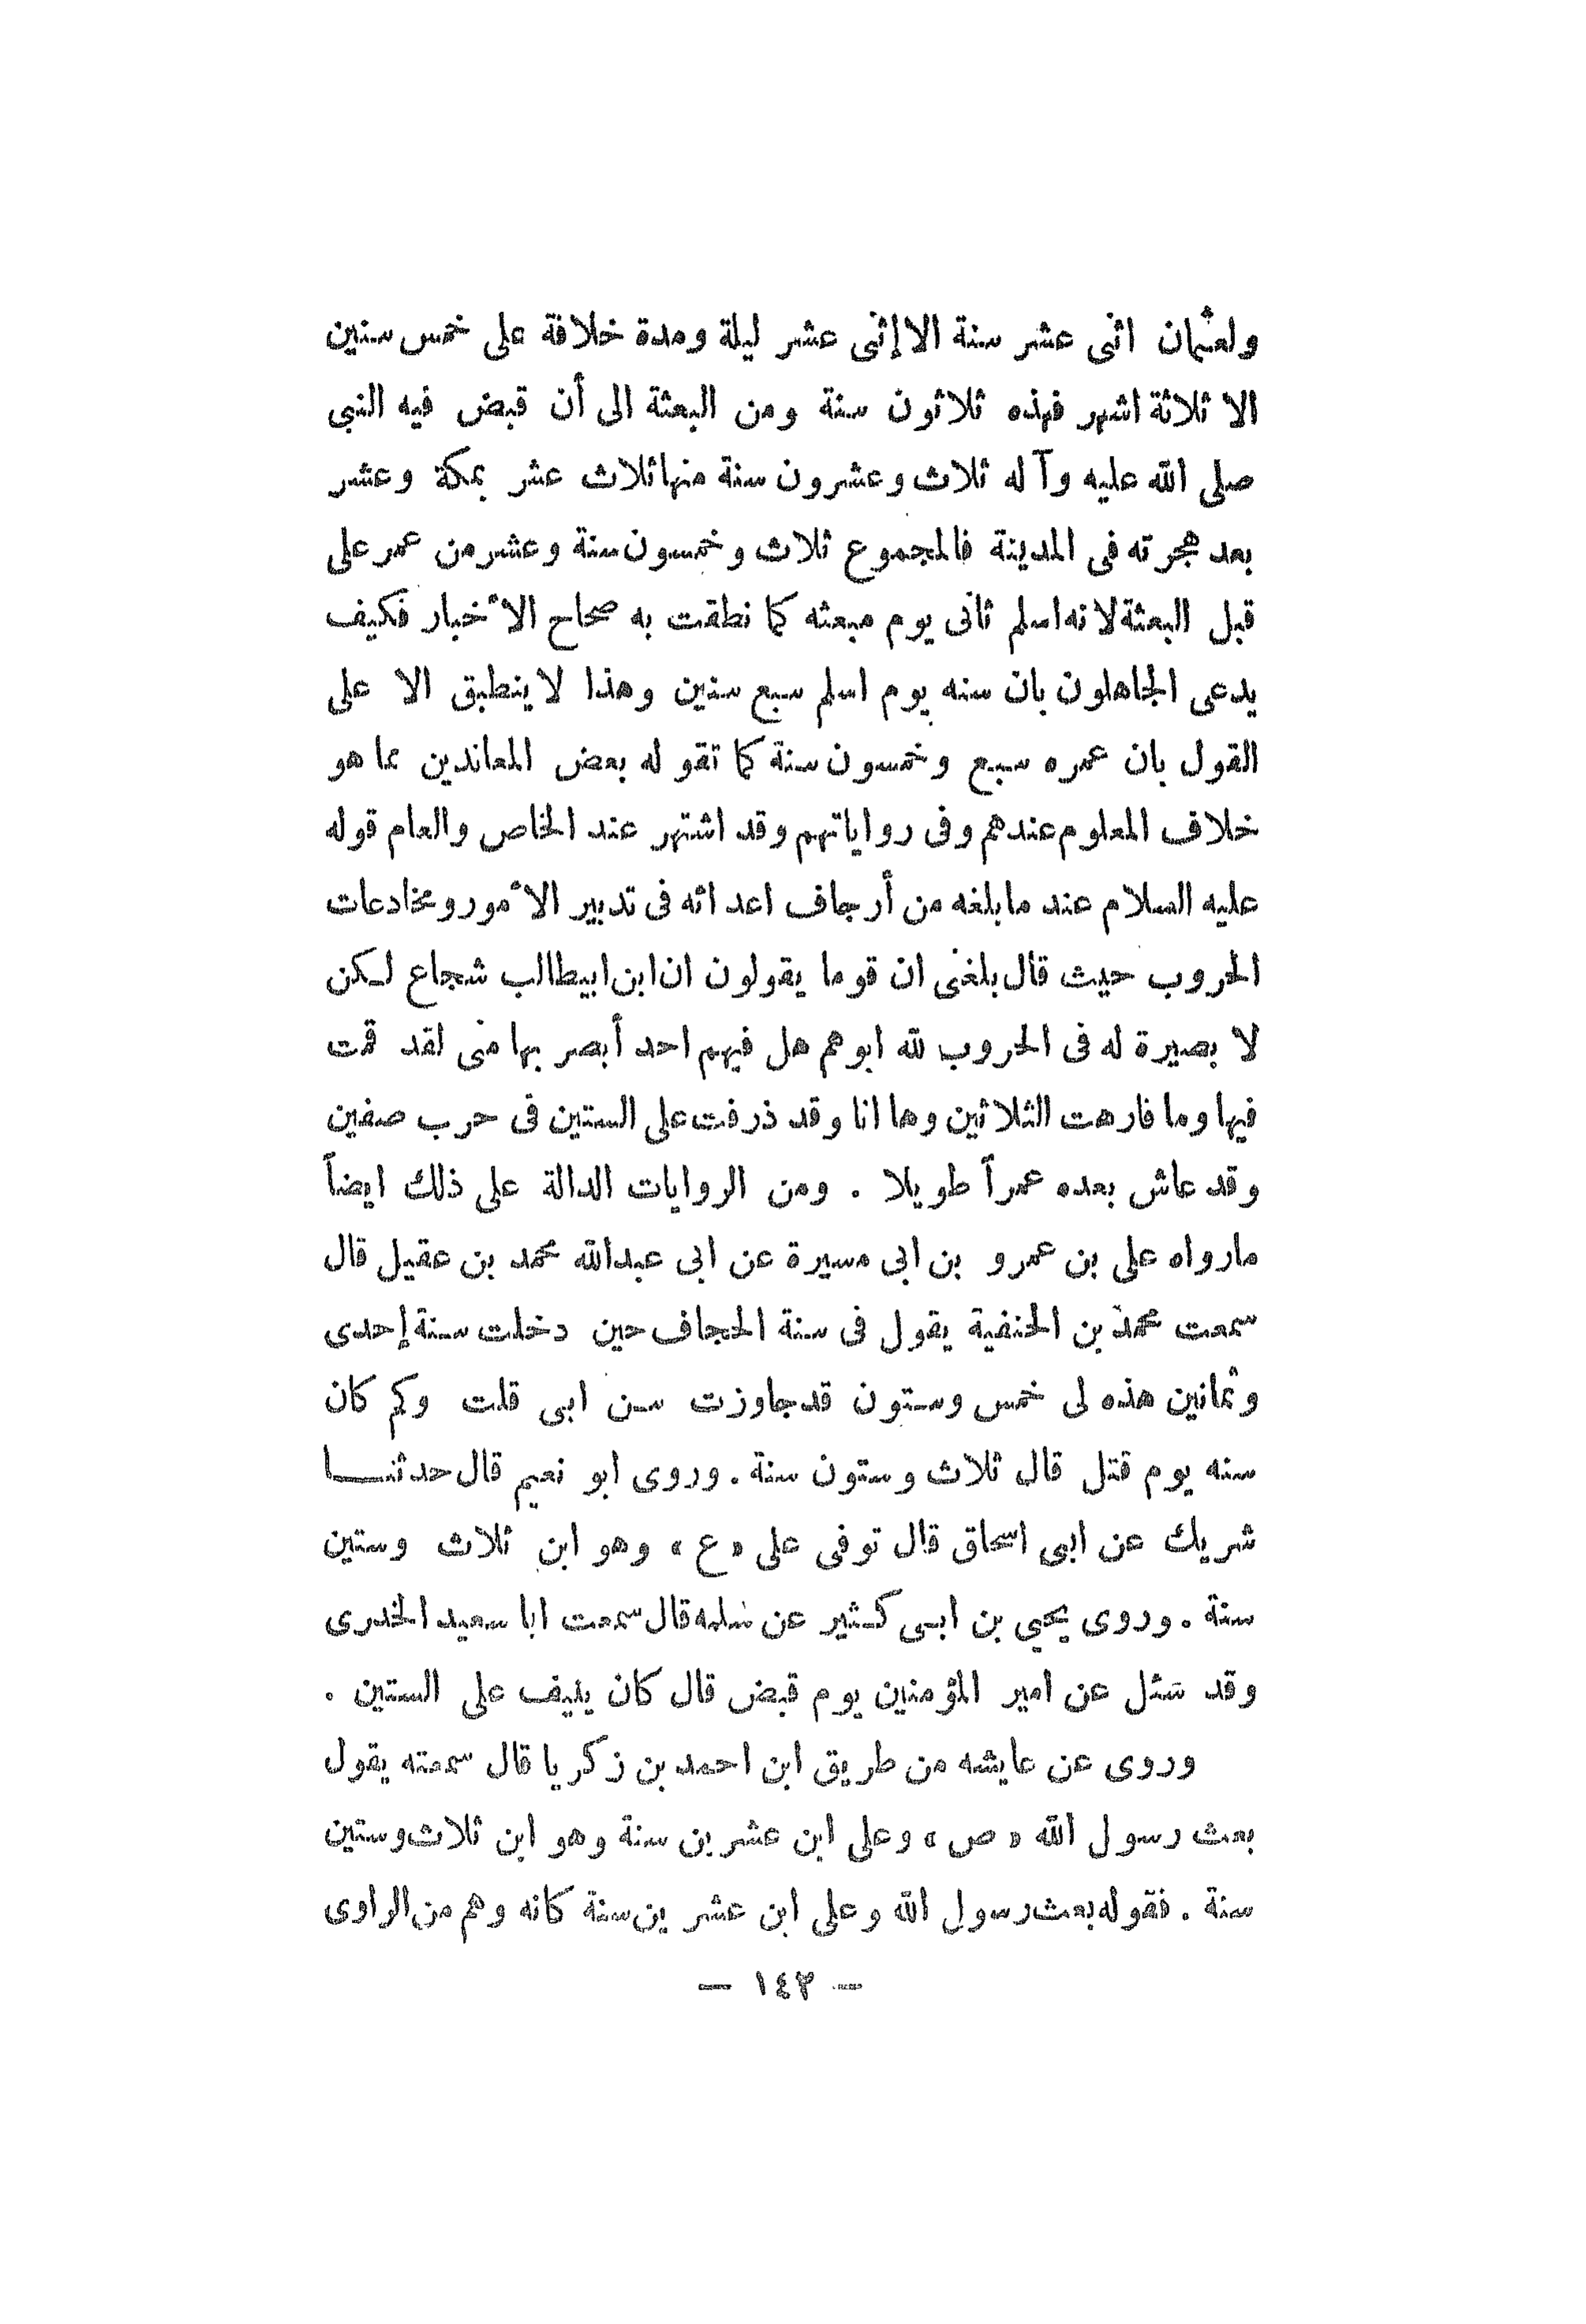 ولعثمان اثنى عشر سنة الا إثنى عشر ليلة ومدة خلافة على خمس سنين
الا ثلاثة اشهر فهذه ثلاثون سنة ومن البعثة الى أن قبض فيه النبي
صلى الله عليه وآله ثلاث وعشرون سنة منها ثلاث عشر بمكة وعشر
بعد هجرته فى المدينة فالمجموع ثلاث وخمسون سنة وعشر من عمر على
قبل البعثة لانه اسلم ثانى يوم مبعثه كما نطقت به صحاح الأخبار فكيف
يدعى الجاهلون بان سنه يوم اسلم سبع سنين وهذا لا ينطبق الا على
القول بان عمره سبع وخمسون سنة كما تقوله بعض المعاندين مما هو
خلاف المعلوم عندهم وفى رواياتهم وقد اشتهر عند الخاص والعام قوله
عليه السلام عند ما بلغه من أرجاف اعدائه فى تدبير الأمور ومخادعات
الحروب حيث قال بلغنى ان قوما يقولون ان ابن ابيطالب شجاع لكن
لا بصيرة له فى الحروب لله ابوهم هل فيهم احد أبصر بها منى لقد قمت
فيها وما فارهت الثلاثين وها انا وقد ذرفت على الستين فى حرب صفين
وقد عاش بعده عمراً طويلا . ومن الروايات الدالة على ذلك ايضاً
مارواه على بن عمرو بن ابى مسيرة عن ابى عبدالله محمد بن عقيل قال
سمعت محمد بن الحنفية يقول فى سنة الحجاف حين دخلت سنة إحدى
وثمانين هذه لى خمس وستون قد جاوزت سن ابى قلت وكم كان
سنه يوم قتل قال ثلاث وستون سنة . وروى ابو نعيم قال حدثنا
شريك عن ابى اسحاق قال توفى على «ع» وهو ابن ثلاث وستين
سنة . وروى يحيي بن ابى كثير عن سلمه قال سمعت ابا سعيد الخدرى
وقد سئل عن امير المؤمنين يوم قبض قال كان ينيف على الستين .
وروى عن عايشه من طريق ابن احمد بن زكريا قال سمعته يقول
بعث رسول الله «ص» وعلى ابن عشرين سنة وهو ابن ثلاث وستين
سنة . فقوله بعث رسول الله وعلى ابن عشرين سنة كانه وهم من الراوى
— ١٤٣ —